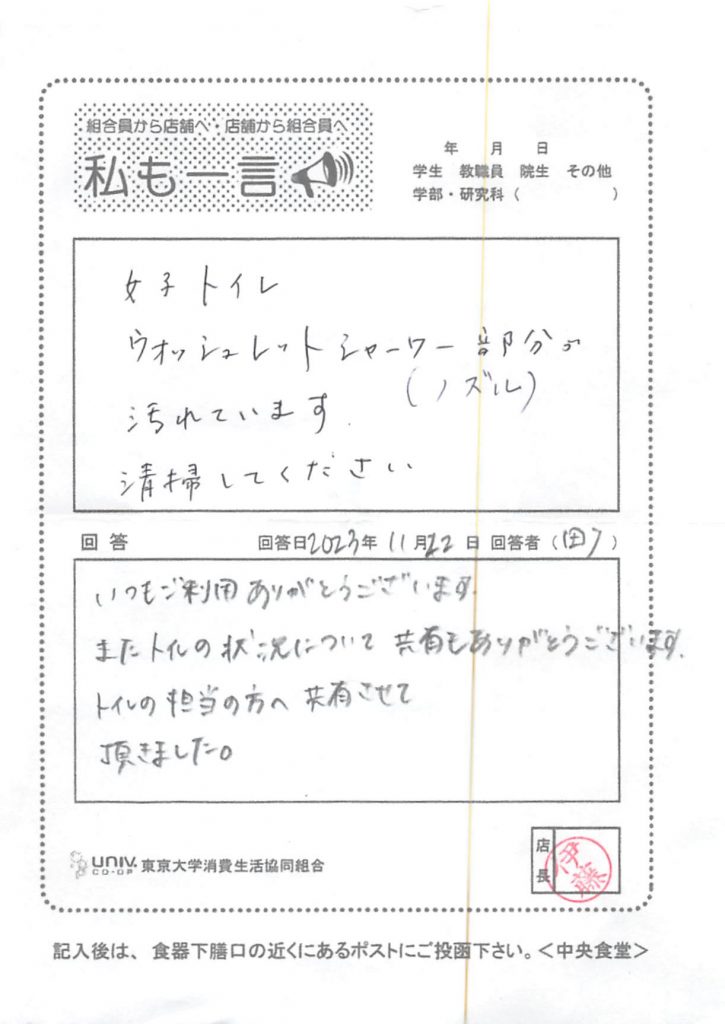 組合員から店舗へ・店舗から組合員へ
私も一言
年 月 日
学生 教職員 院生 その他
学部・研究科 ( )
女子トイレ
ウオッシュレットシャーワー部分が
(ノズル)
汚れています.
清掃してください
回答 回答日2023年 11月22日 回答者 ( )
いつもご利用ありがとうございます.
またトイレの状況について共有もありがとうございます.
トイレの担当の方へ共有させて
頂きました。
UNIV. CO-OP 東京大学消費生活協同組合
店長 伊藤
記入後は、食器下膳口の近くにあるポストにご投函下さい。<中央食堂>